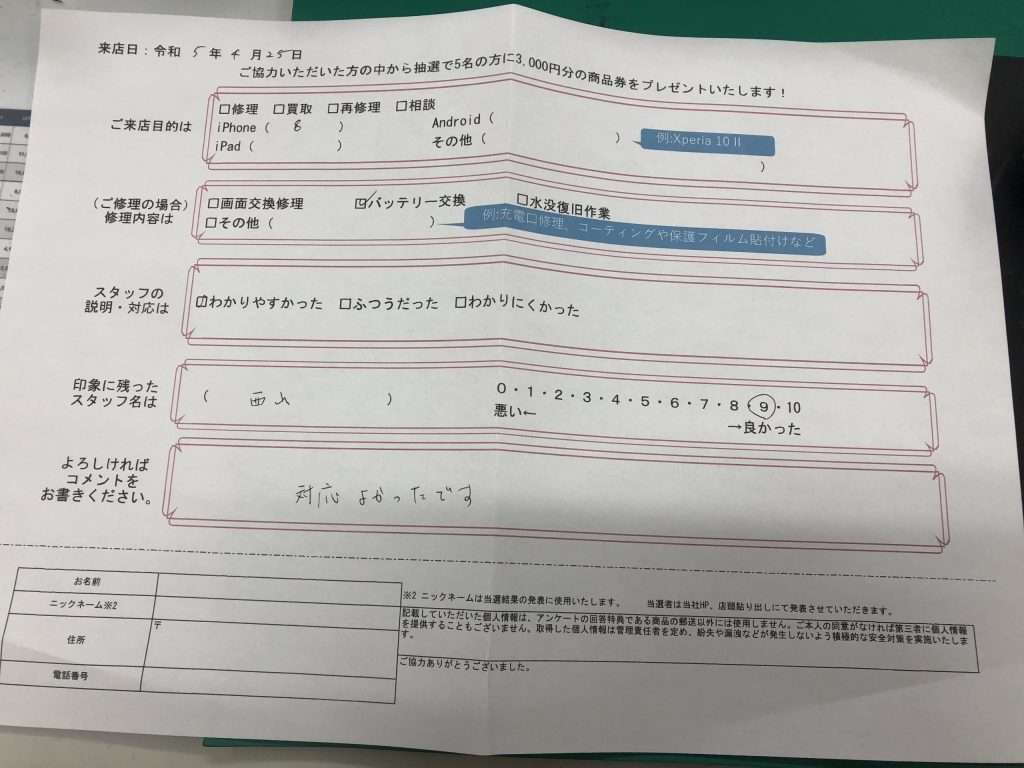 来店日：令和 5 年 4 月 25 日
ご協力いただいた方の中から抽選で5名の方に3,000円分の商品券をプレゼントいたします！
ご来店目的は
□修理 □買取 □再修理 □相談
iPhone（ 8 ） Android（ ）
例:Xperia 10 II
iPad（ ） その他（ ）
（ご修理の場合）
修理内容は
□画面交換修理 ☑バッテリー交換 □水没復旧作業
□その他（ ）
例:充電口修理、コーティングや保護フィルム貼付けなど
スタッフの
説明・対応は
☑わかりやすかった □ふつうだった □わかりにくかった
印象に残った
スタッフ名は
（ 西山 ）
0・1・2・3・4・5・6・7・8・9・10
悪い← →良かった
よろしければ
コメントを
お書きください。
対応よかったです
お名前
ニックネーム※2
住所 〒
電話番号
※2 ニックネームは当選結果の発表に使用いたします。 当選者は当社HP、店頭貼り出しにて発表させていただきます。
記載していただいた個人情報は、アンケートの回答特典である商品の郵送以外には使用しません。ご本人の同意がなければ第三者に個人情報
を提供することもございません。取得した個人情報は管理責任者を定め、紛失や漏洩などが発生しないよう積極的な安全対策を実施いたしま
す。
ご協力ありがとうございました。